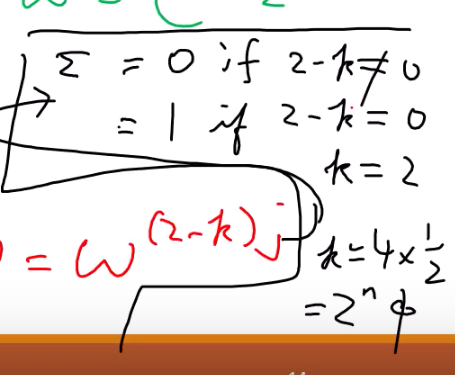 Σ = 0 if 2-k ≠ 0
= 1 if 2-k = 0
k = 2
= ω^(2-k)j
k = 4 × 1/2
= 2^n ϕ